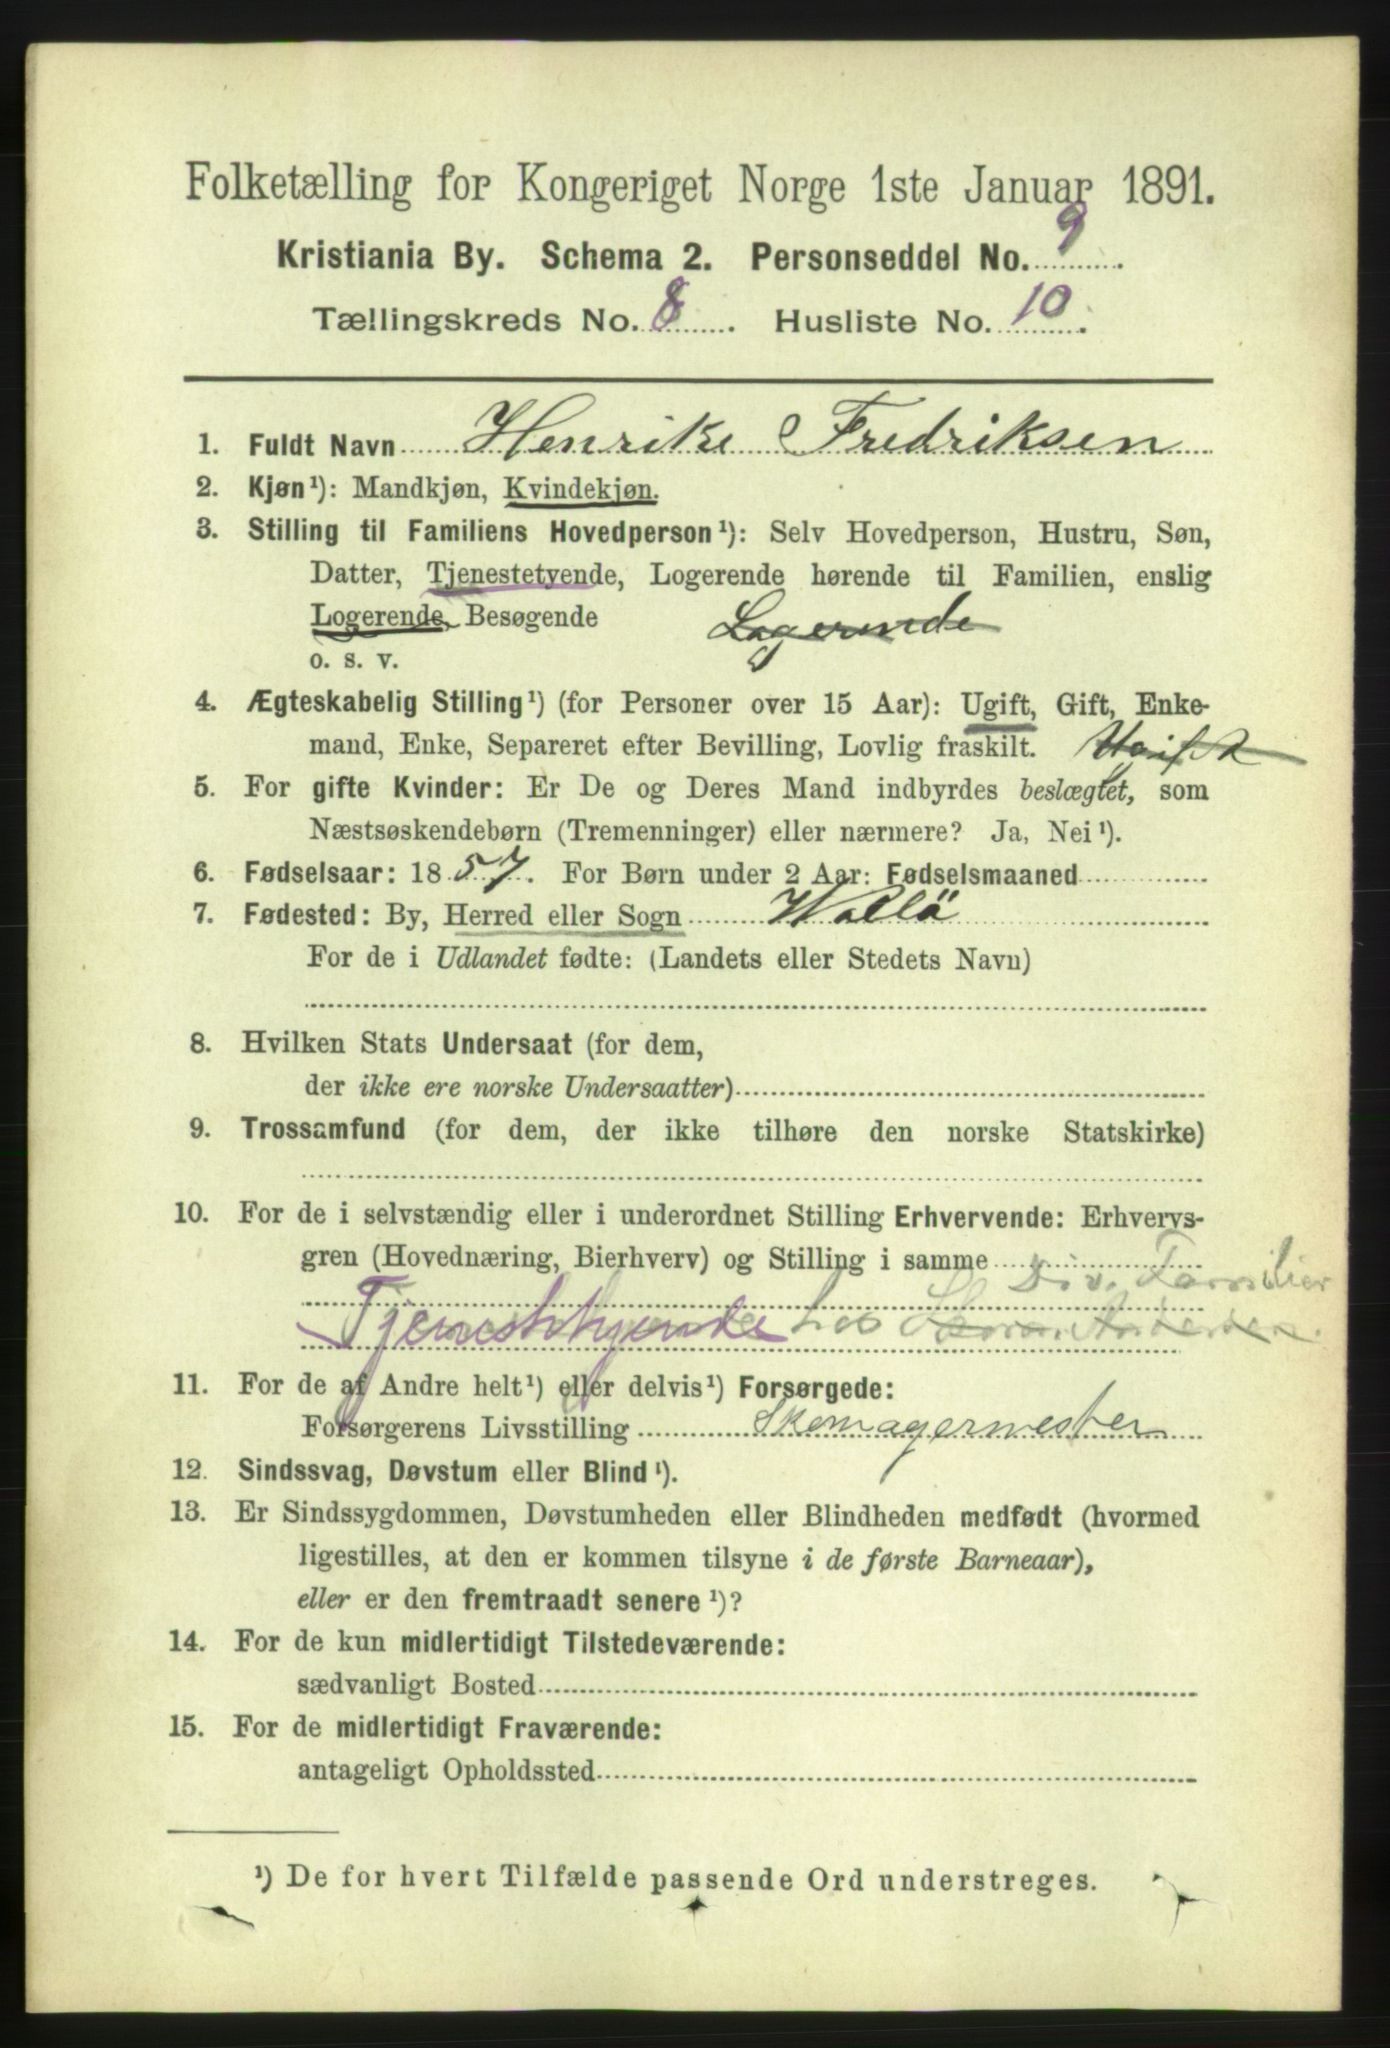 Folketælling for Kongeriget Norge 1ste Januar 1891.
Kristiania By. Schema 2. Personseddel No. 9.
Tællingskreds No. 8. Husliste No. 10.
1. Fuldt Navn Henrike Fredriksen
2. Kjøn¹): Mandkjøn, Kvindekjøn.
3. Stilling til Familiens Hovedperson¹): Selv Hovedperson, Hustru, Søn,
Datter, Tjenestetyende, Logerende hørende til Familien, enslig
Logerende, Besøgende Logerende
o. s. v.
4. Ægteskabelig Stilling¹) (for Personer over 15 Aar): Ugift, Gift, Enke-
mand, Enke, Separeret efter Bevilling, Lovlig fraskilt. Ugift
5. For gifte Kvinder: Er De og Deres Mand indbyrdes beslægtet, som
Næstsøskendebørn (Tremenninger) eller nærmere? Ja, Nei¹).
6. Fødselsaar: 1857. For Børn under 2 Aar: Fødselsmaaned
7. Fødested: By, Herred eller Sogn Wallö
For de i Udlandet fødte: (Landets eller Stedets Navn)
8. Hvilken Stats Undersaat (for dem,
der ikke ere norske Undersaatter)
9. Trossamfund (for dem, der ikke tilhøre den norske Statskirke)
10. For de i selvstændig eller i underordnet Stilling Erhvervende: Erhvervs-
gren (Hovednæring, Bierhverv) og Stilling i samme Div. Familier
Tjenesttyende hos
11. For de af Andre helt¹) eller delvis¹) Forsørgede:
Forsørgerens Livsstilling Skomagermester
12. Sindssvag, Døvstum eller Blind¹).
13. Er Sindssygdommen, Døvstumheden eller Blindheden medfødt (hvormed
ligestilles, at den er kommen tilsyne i de første Barneaar),
eller er den fremtraadt senere¹)?
14. For de kun midlertidigt Tilstedeværende:
sædvanligt Bosted
15. For de midlertidigt Fraværende:
antageligt Opholdssted
¹) De for hvert Tilfælde passende Ord understreges.